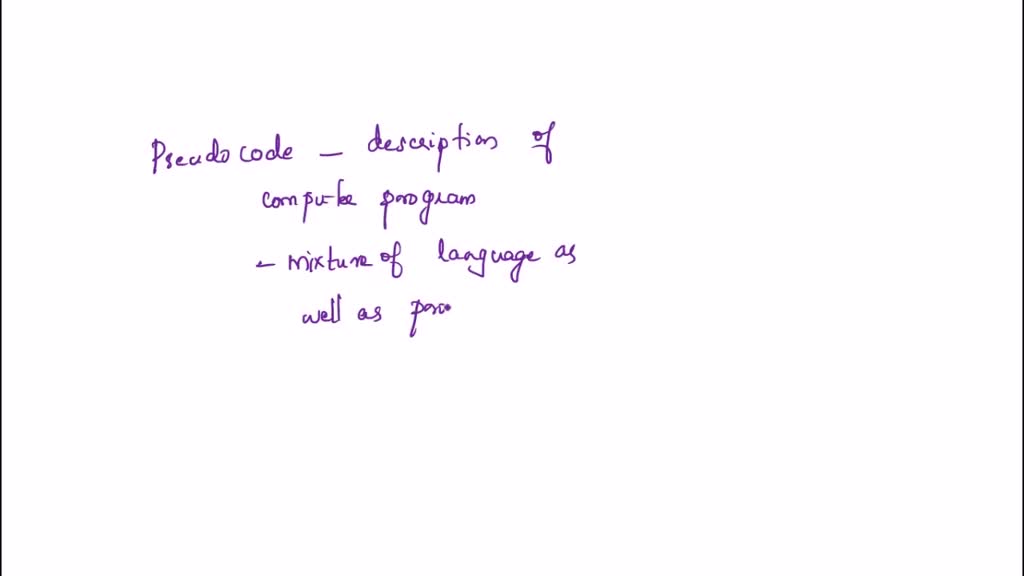 Pseudo code – description of
compute program
– mixture of language as
well as pro